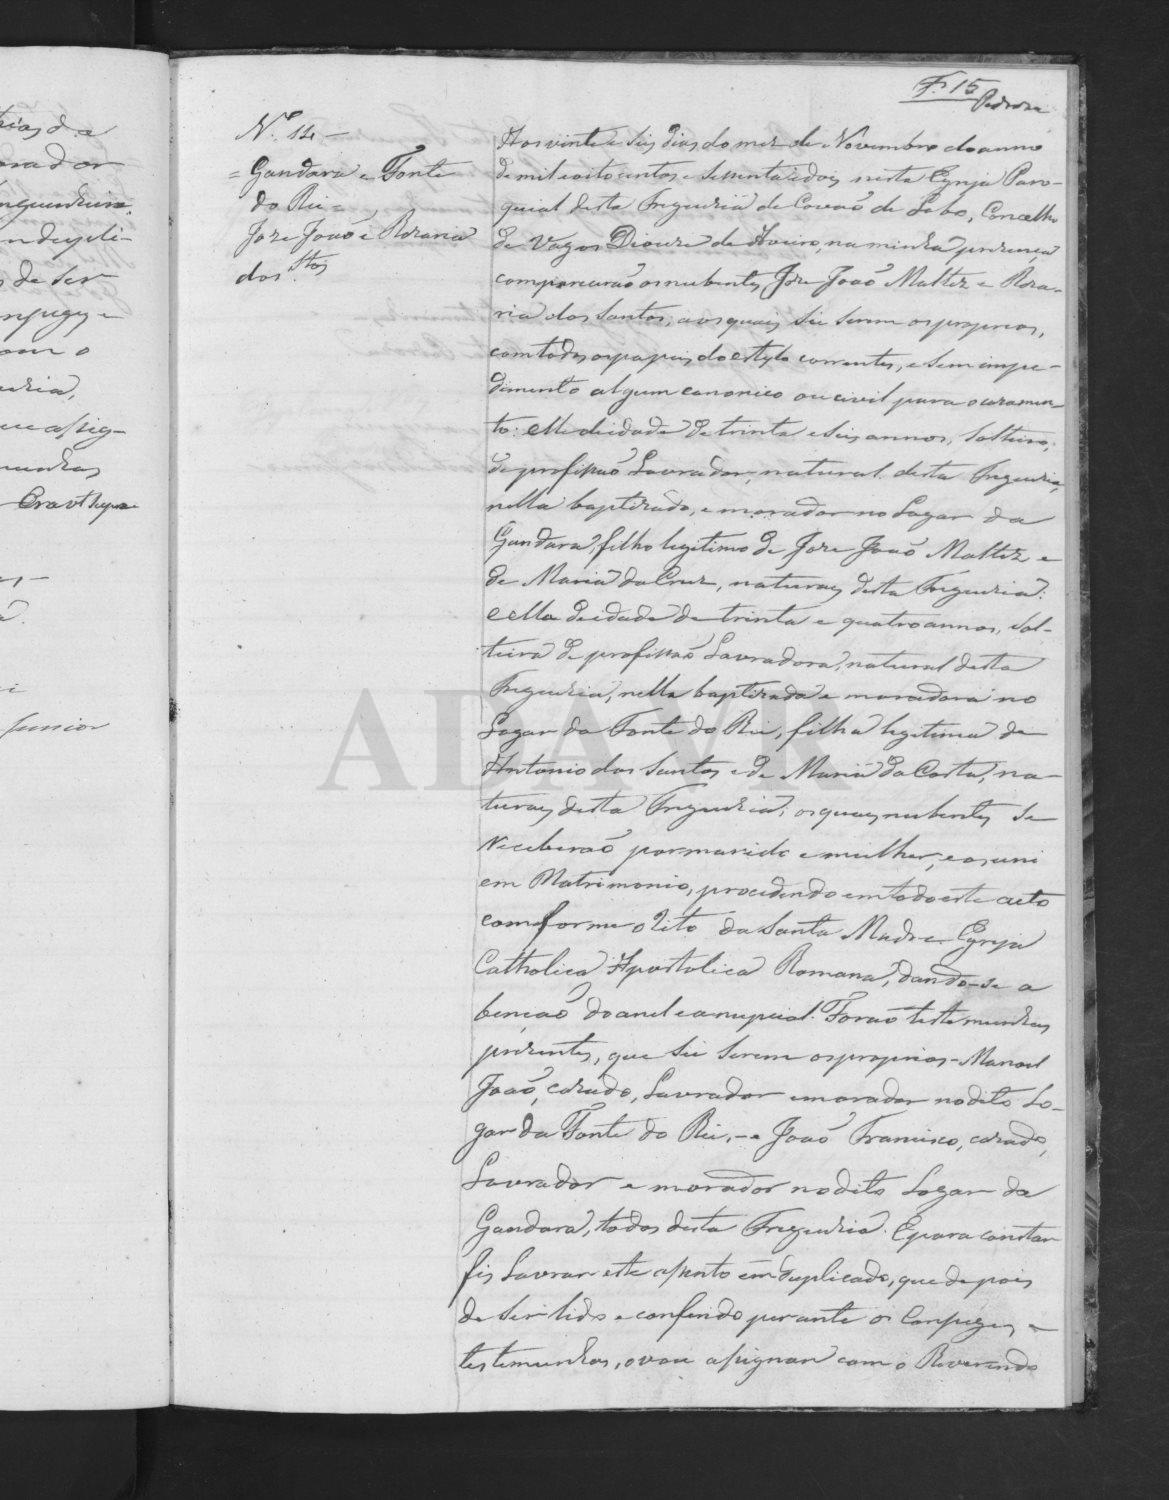 F. 15
Pedroza
N.º 14 –
= Gandara e Fonte
do Rie =
Joze João e Rozaria
dos Stos
Aos vinte e seis dias do mez de Novembro do anno
de mil e oito centos e sessenta e dois nesta Egreja Paro-
quial desta Freguezia de Covaõ do Lobo, Concelho
de Vagos Dioceze de Aveiro, na minha prezença
comparecerão os nubentes Joze João Maltez e Roza-
ria dos Santos, aos quais sei serem os proprios,
com todos os papeis do estylo correntes, e sem impe-
dimento algum canonico ou civil para o cazamen-
to: elle de idade de trinta e seis annos, Solteiro,
de profissaõ Lavrador, natural desta Freguezia,
nella baptizado, e morador no Lugar da
Gandara, filho legitimo de Joze João Maltez, e
de Maria da Cruz, naturaes desta Freguezia:
e ella de idade de trinta e quatro annos, Sol-
teira de profissaõ Lavradora, natural desta
Freguezia, nella baptizada e moradora no
Logar da Fonte do Rie, filha legitima de
Antonio dos Santos e de Maria da Costa, na-
turaes desta Freguezia; os quaes nubentes se
receberaõ por marido e mulher, e os uni
em Matrimonio, procedendo em todo este acto
comforme o Rito da Santa Madre Egreja
Catholica Apostolica Romana, dando-se a
bençaõ do anel e a nupcial. Foraõ testemunhas
prezentes, que sei serem os proprios – Manoel
João, cazado, Lavrador e morador no dito Lo-
gar da Fonte do Rie, – e João Francisco, cazado,
Lavrador e morador no dito Logar da
Gandara, todos desta Freguezia. E para constar
fiz Lavrar este assento em duplicado, que depois
de ser lido e conferido perante os Conjuges e
testemunhas, o vou assignar com o Reverendo
ADAVR